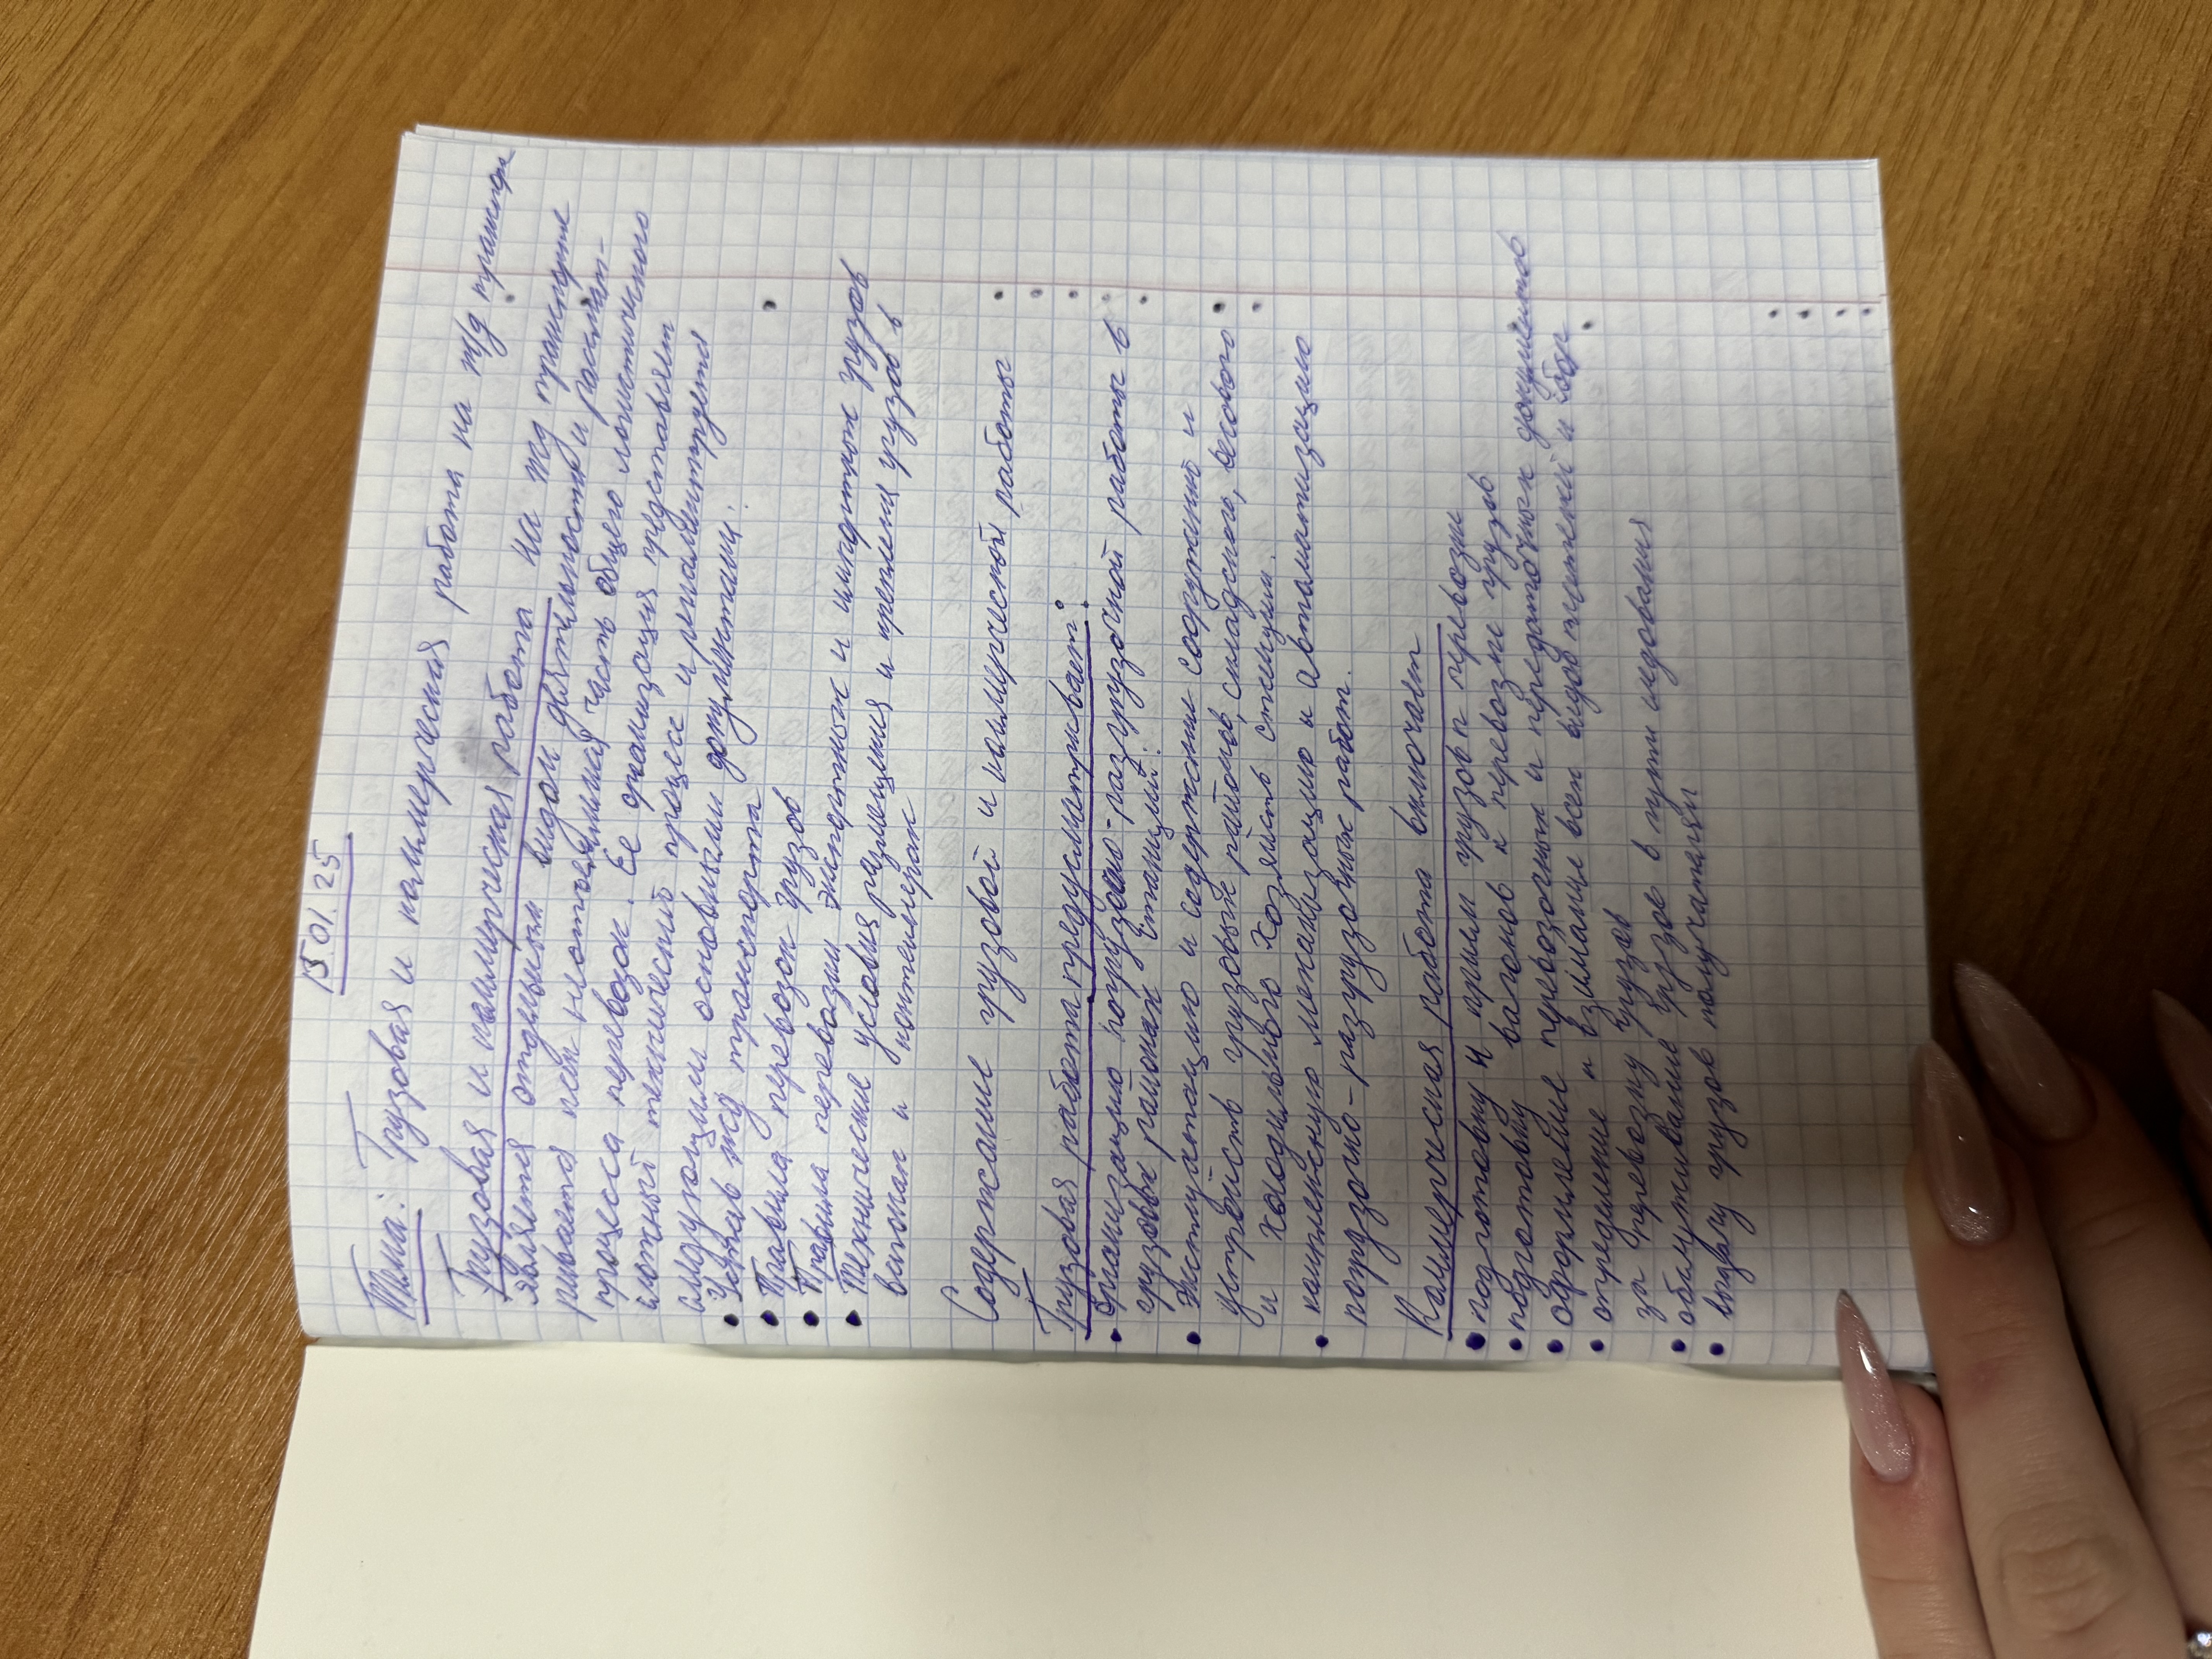 15.01.25
Тема: Грузовая и коммерческая работа на ж/д транспорте
Грузовая и коммерческая работа на жд транспорте
является отдельным видом деятельности и рассмат-
ривается как неотъемлимая часть общего логистического
процесса перевозок. Ее организация представляет
сложный технический процесс и регламентируется
следующими основными документами:
• Устав жд транспорта
• Правила перевозок грузов
• Правила перевозки экспортных и импортных грузов
• Технические условия размещения и крепления грузов в
вагонах и контейнерах
Содержание грузовой и коммерческой работы
Грузовая работа предусматривает:
• Организацию погрузочно-разгрузочной работы в
грузовых районах станций.
• Эксплуатацию и содержание сооружений и
устройств грузовых районов, складского, весового
и холодильного хозяйств станции.
• комплексную механизацию и автоматизацию
погрузочно-разгрузочных работ.
Коммерческая работа включает
• подготовку и прием грузов к перевозки
• подготовку вагонов к перевозке грузов
• оформление перевозочных и передаточных документов
• определение и взимание всех видов платежей и сборов
за перевозку грузов
• обслуживание грузов в пути следования
• выдачу грузов получателям